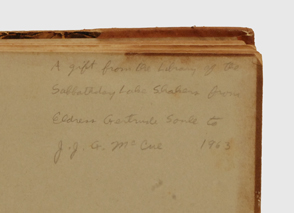 A gift from the Library of the
Sabbathday Lake Shakers from
Eldress Gertrude Soule to
J. J. G. McCue 1963